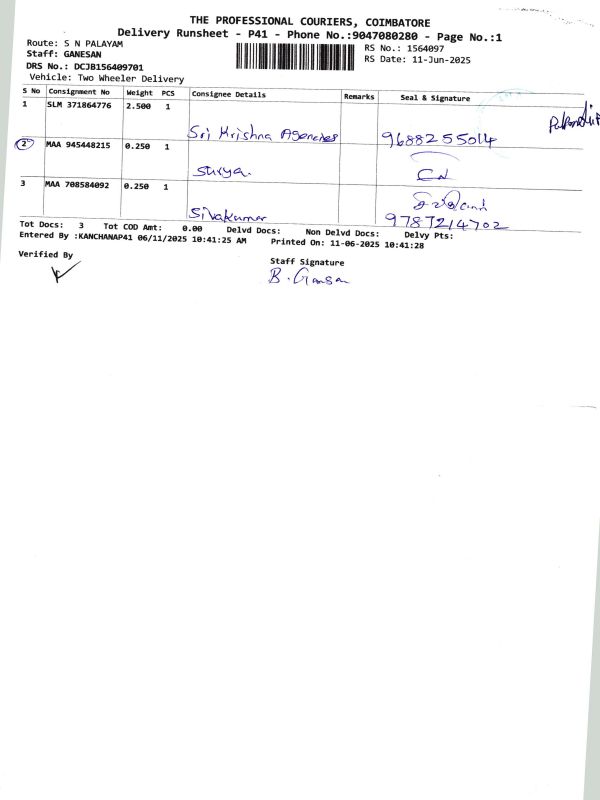 THE PROFESSIONAL COURIERS, COIMBATORE
Delivery Runsheet - P41 - Phone No.:9047080280 - Page No.:1
Route: S N PALAYAM
RS No.: 1564097
Staff: GANESAN
RS Date: 11-Jun-2025
DRS No.: DCJB156409701
Vehicle: Two Wheeler Delivery
S No Consignment No Weight PCS Consignee Details Remarks Seal & Signature
1 SLM 371864776 2.500 1
Sri Krishna Agencies 9688255014
2 MAA 945448215 0.250 1
Surya
3 MAA 708584092 0.250 1
Sivakumar 9787214702
Tot Docs: 3 Tot COD Amt: 0.00 Delvd Docs: Non Delvd Docs: Delvy Pts:
Entered By :KANCHANAP41 06/11/2025 10:41:25 AM Printed On: 11-06-2025 10:41:28
Verified By
Staff Signature
B. Gansan